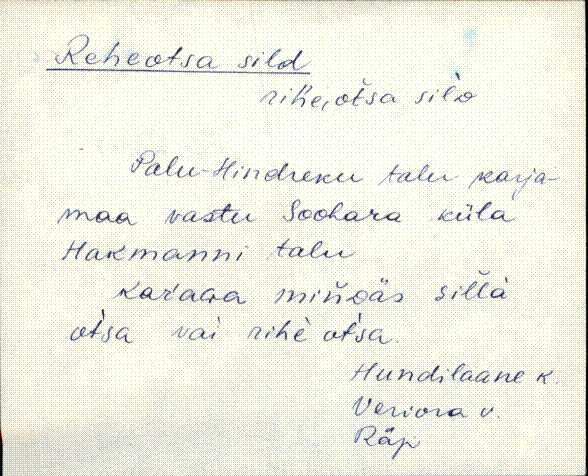 Reheotsa sild
rihe, otsa sild
Palu-Hindreku talu karja-
maa vastu Soohara küla
Hakmanni talu
minnäs silla
otsa vai rihe otsa.
Hundilaane k.
Veriora v.
Räp